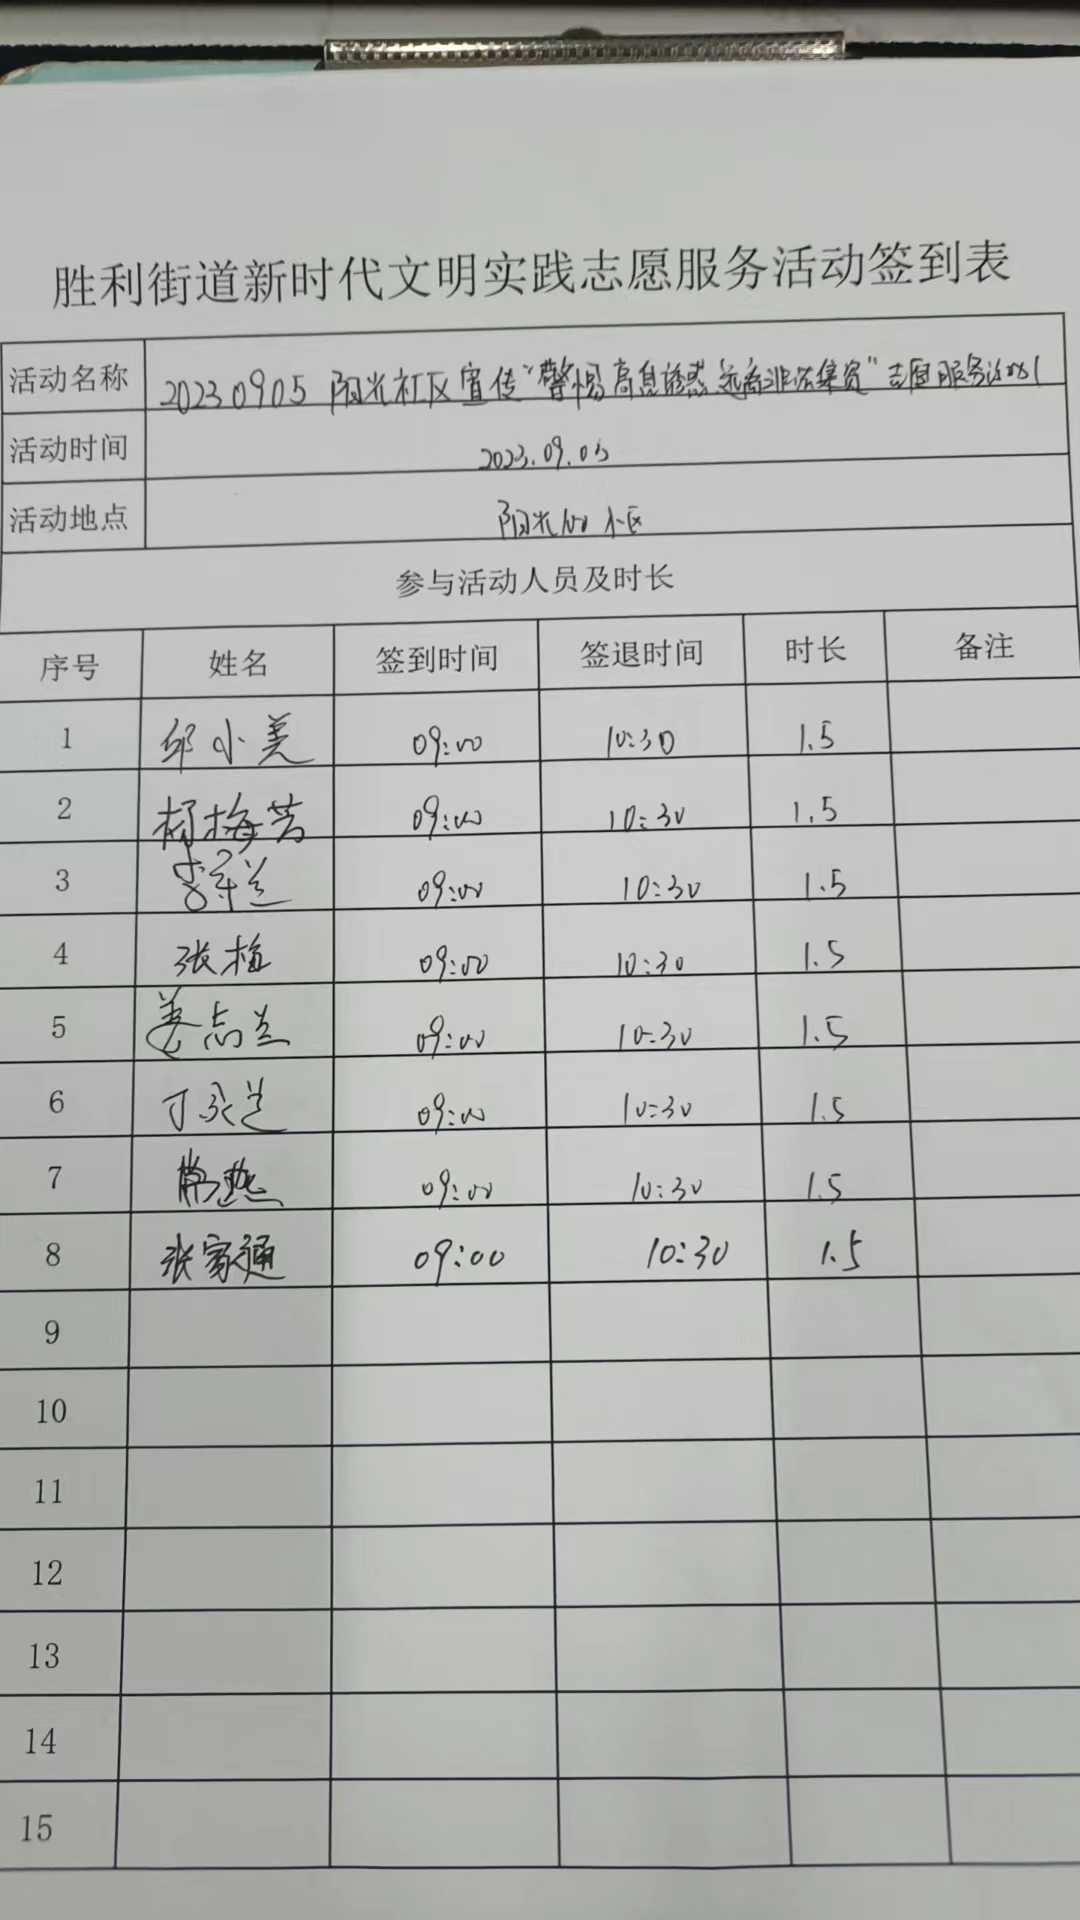 胜利街道新时代文明实践志愿服务活动签到表
活动名称 20230905 阳光社区宣传“警惕高息诱惑 远离非法集资”志愿服务活动
活动时间 2023.09.05
活动地点 阳光100小区
参与活动人员及时长
序号 姓名 签到时间 签退时间 时长 备注
1 邱小美 09:00 10:30 1.5
2 杨梅芳 09:00 10:30 1.5
3 李兰 09:00 10:30 1.5
4 张梅 09:00 10:30 1.5
5 姜志兰 09:00 10:30 1.5
6 丁永兰 09:00 10:30 1.5
7 09:00 10:30 1.5
8 张家通 09:00 10:30 1.5
9
10
11
12
13
14
15